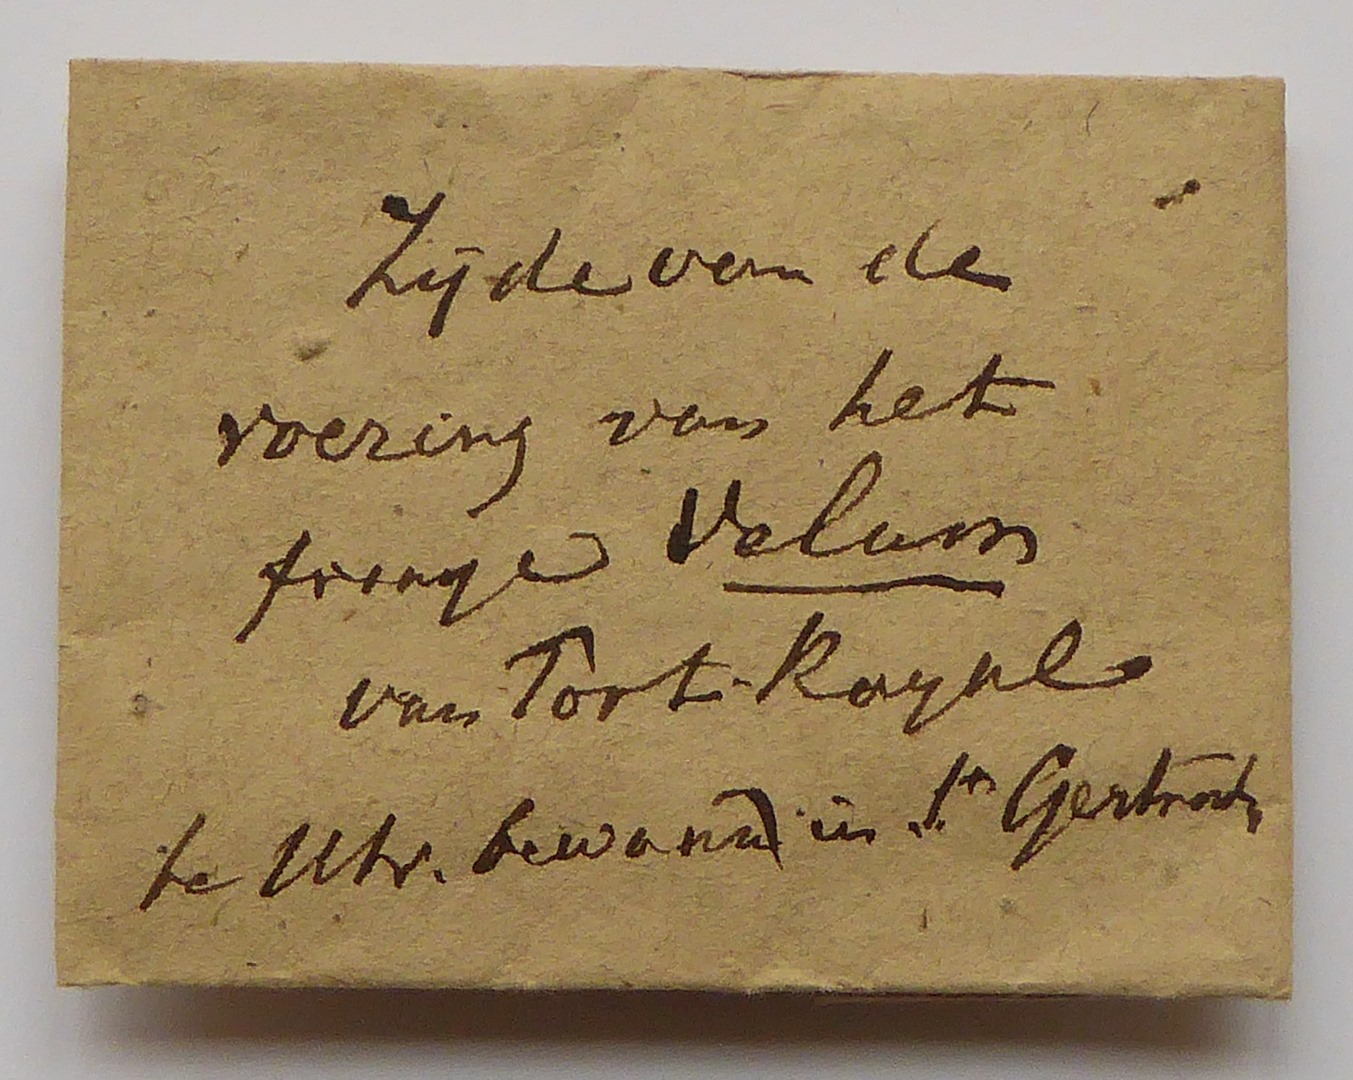 Zijde van de
voering van het
franje Velum
van Port-Royal
te Utr. bewaard in St. Gertrud.